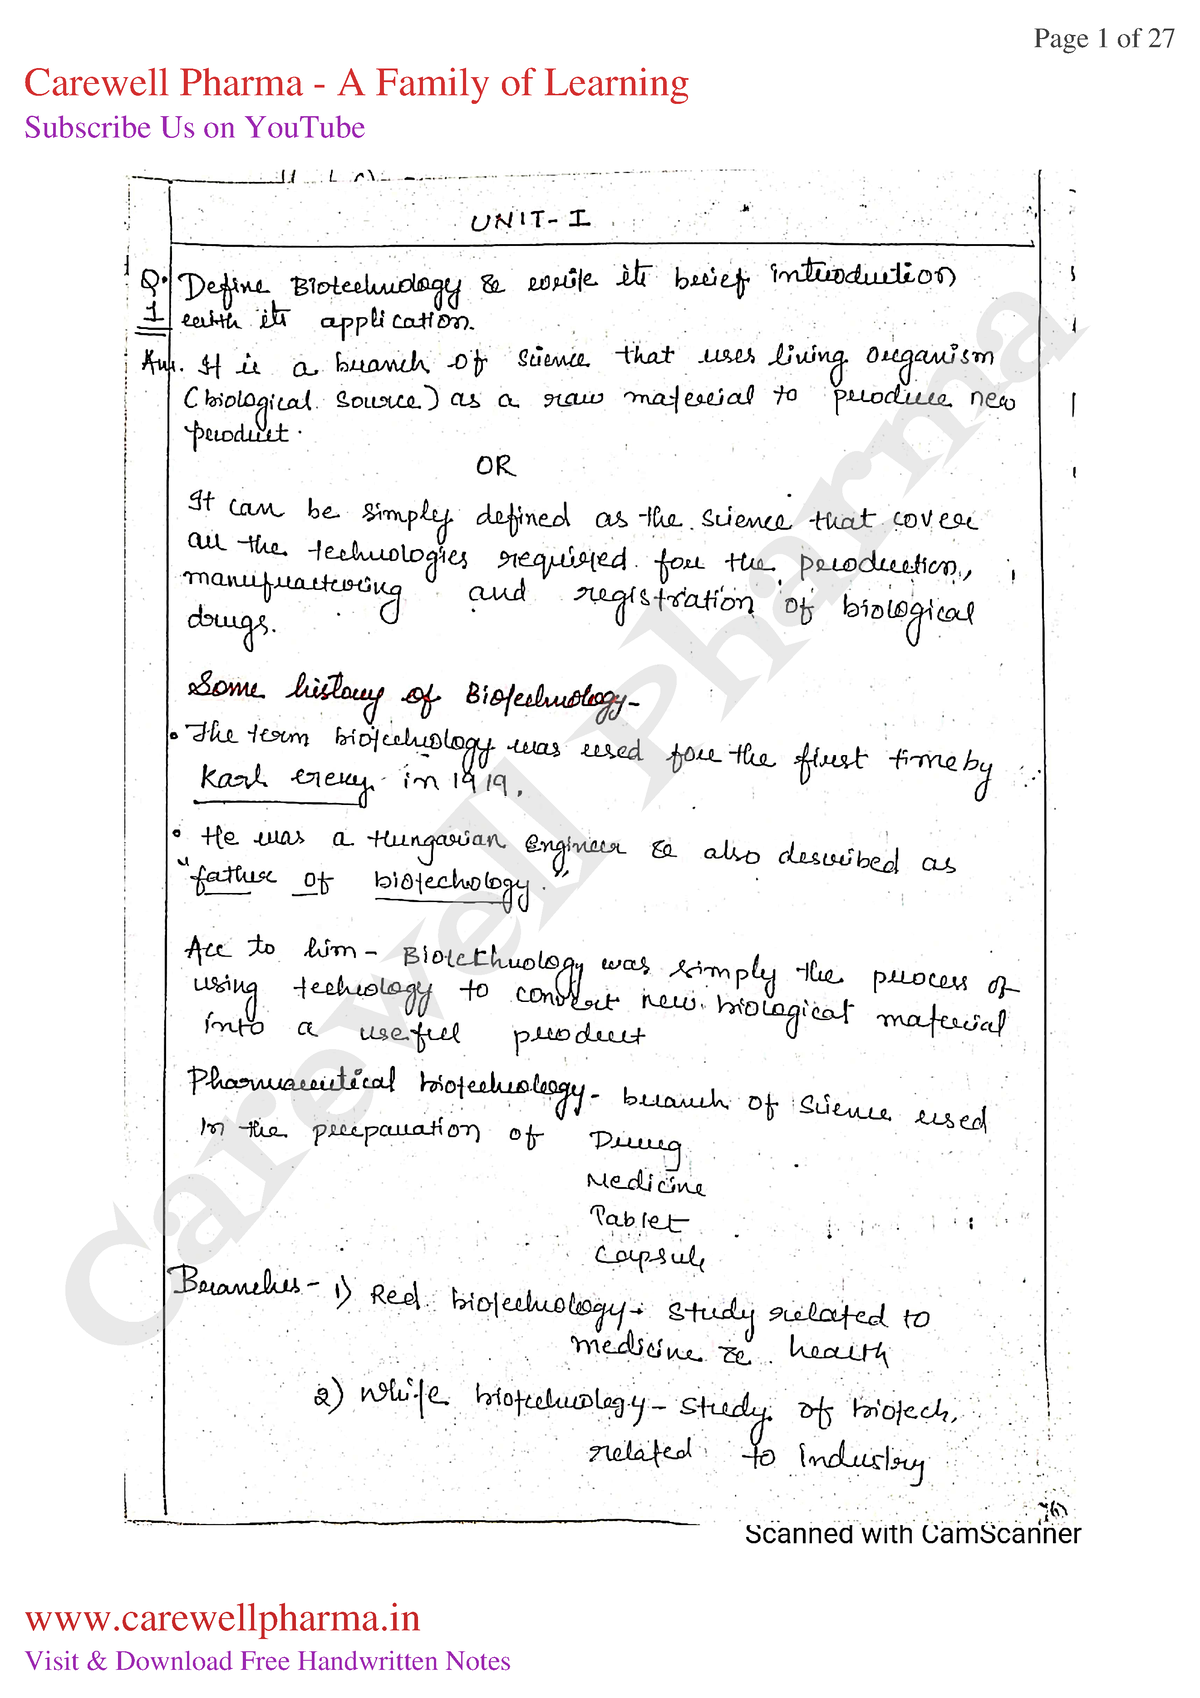 Page 1 of 27
Carewell Pharma - A Family of Learning
Subscribe Us on YouTube
UNIT-I
Q.1 Define Biotechnology & write its brief introduction
with its application.
Ans. It is a branch of science that uses living organism
(biological source) as a raw material to produce new
product.
OR
It can be simply defined as the science that cover
all the technologies required for the production,
manufuacturing and registration of biological
drugs.
Some history of Biotechnology-
• The term biotechnology was used for the first time by
Karl ereky in 1919.
• He was a Hungarian Engineer & also described as
"father of biotechology."
Acc to him - Biotechnology was simply the process of
using technology to convert new biological material
into a useful product
Pharmaceutical biotechnology - branch of science used
in the preparation of Drug
Medicine
Tablet
Capsule
Branches - 1) Red biotechnology - study related to
medicine & health
2) White biotechnology - study of biotech,
related to industry
Scanned with CamScanner
www.carewellpharma.in
Visit & Download Free Handwritten Notes
Carewell Pharma